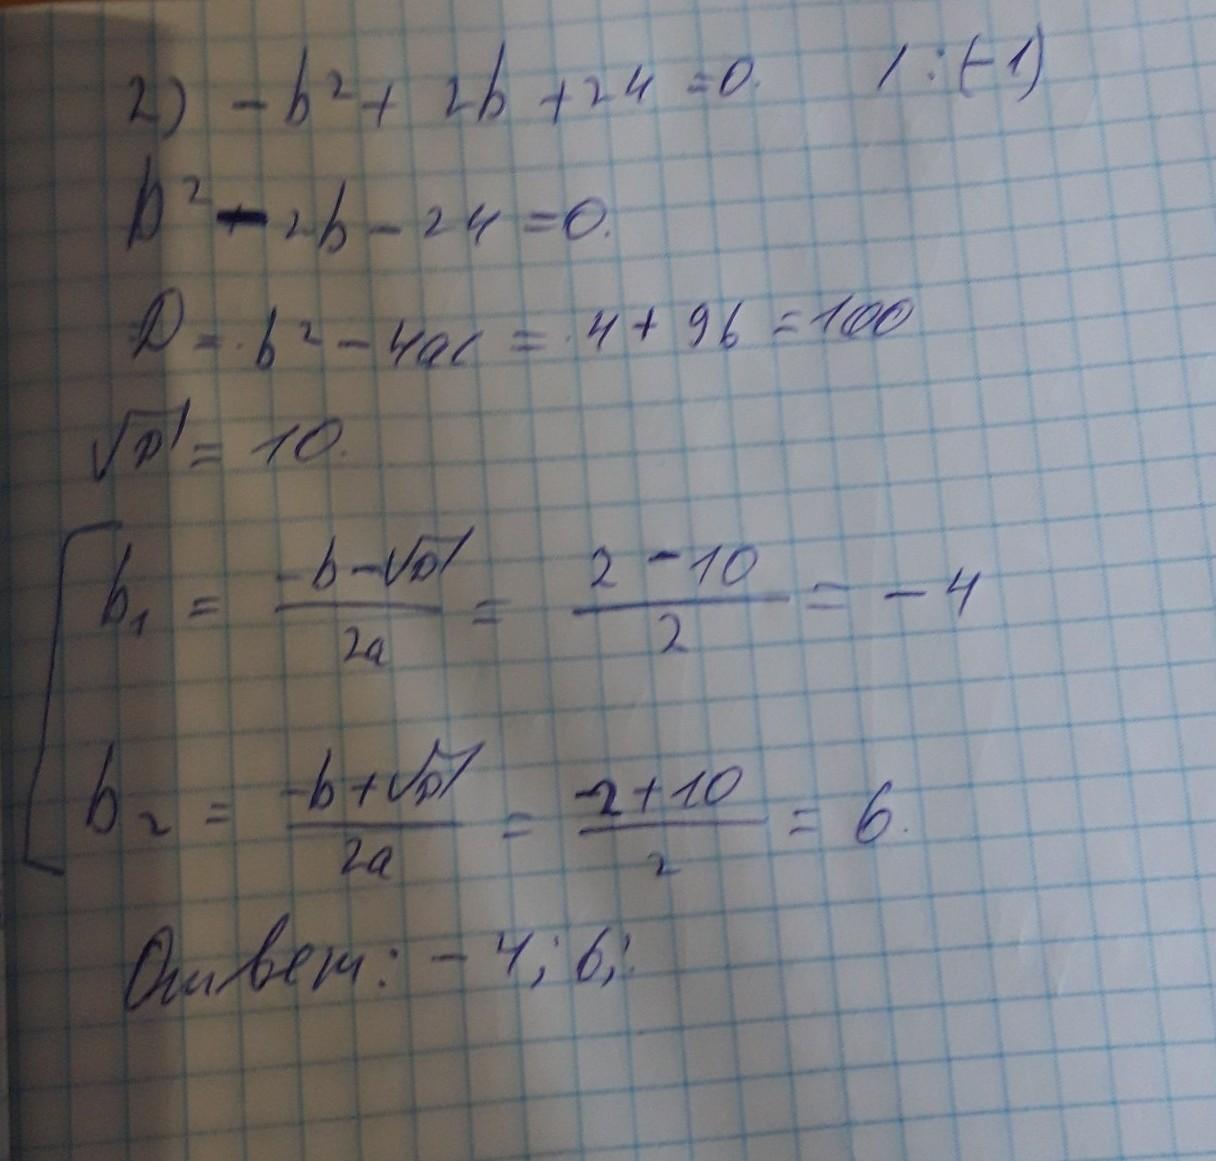 2) -b² + 2b + 24 = 0. / : (-1)
b² - 2b - 24 = 0.
D = b² - 4ac = 4 + 96 = 100
√D = 10.
b₁ = (-b-√D)/(2a) = (2 - 10)/2 = -4
b₂ = (-b+√D)/(2a) = (2+10)/2 = 6.
Ответ: -4; 6;